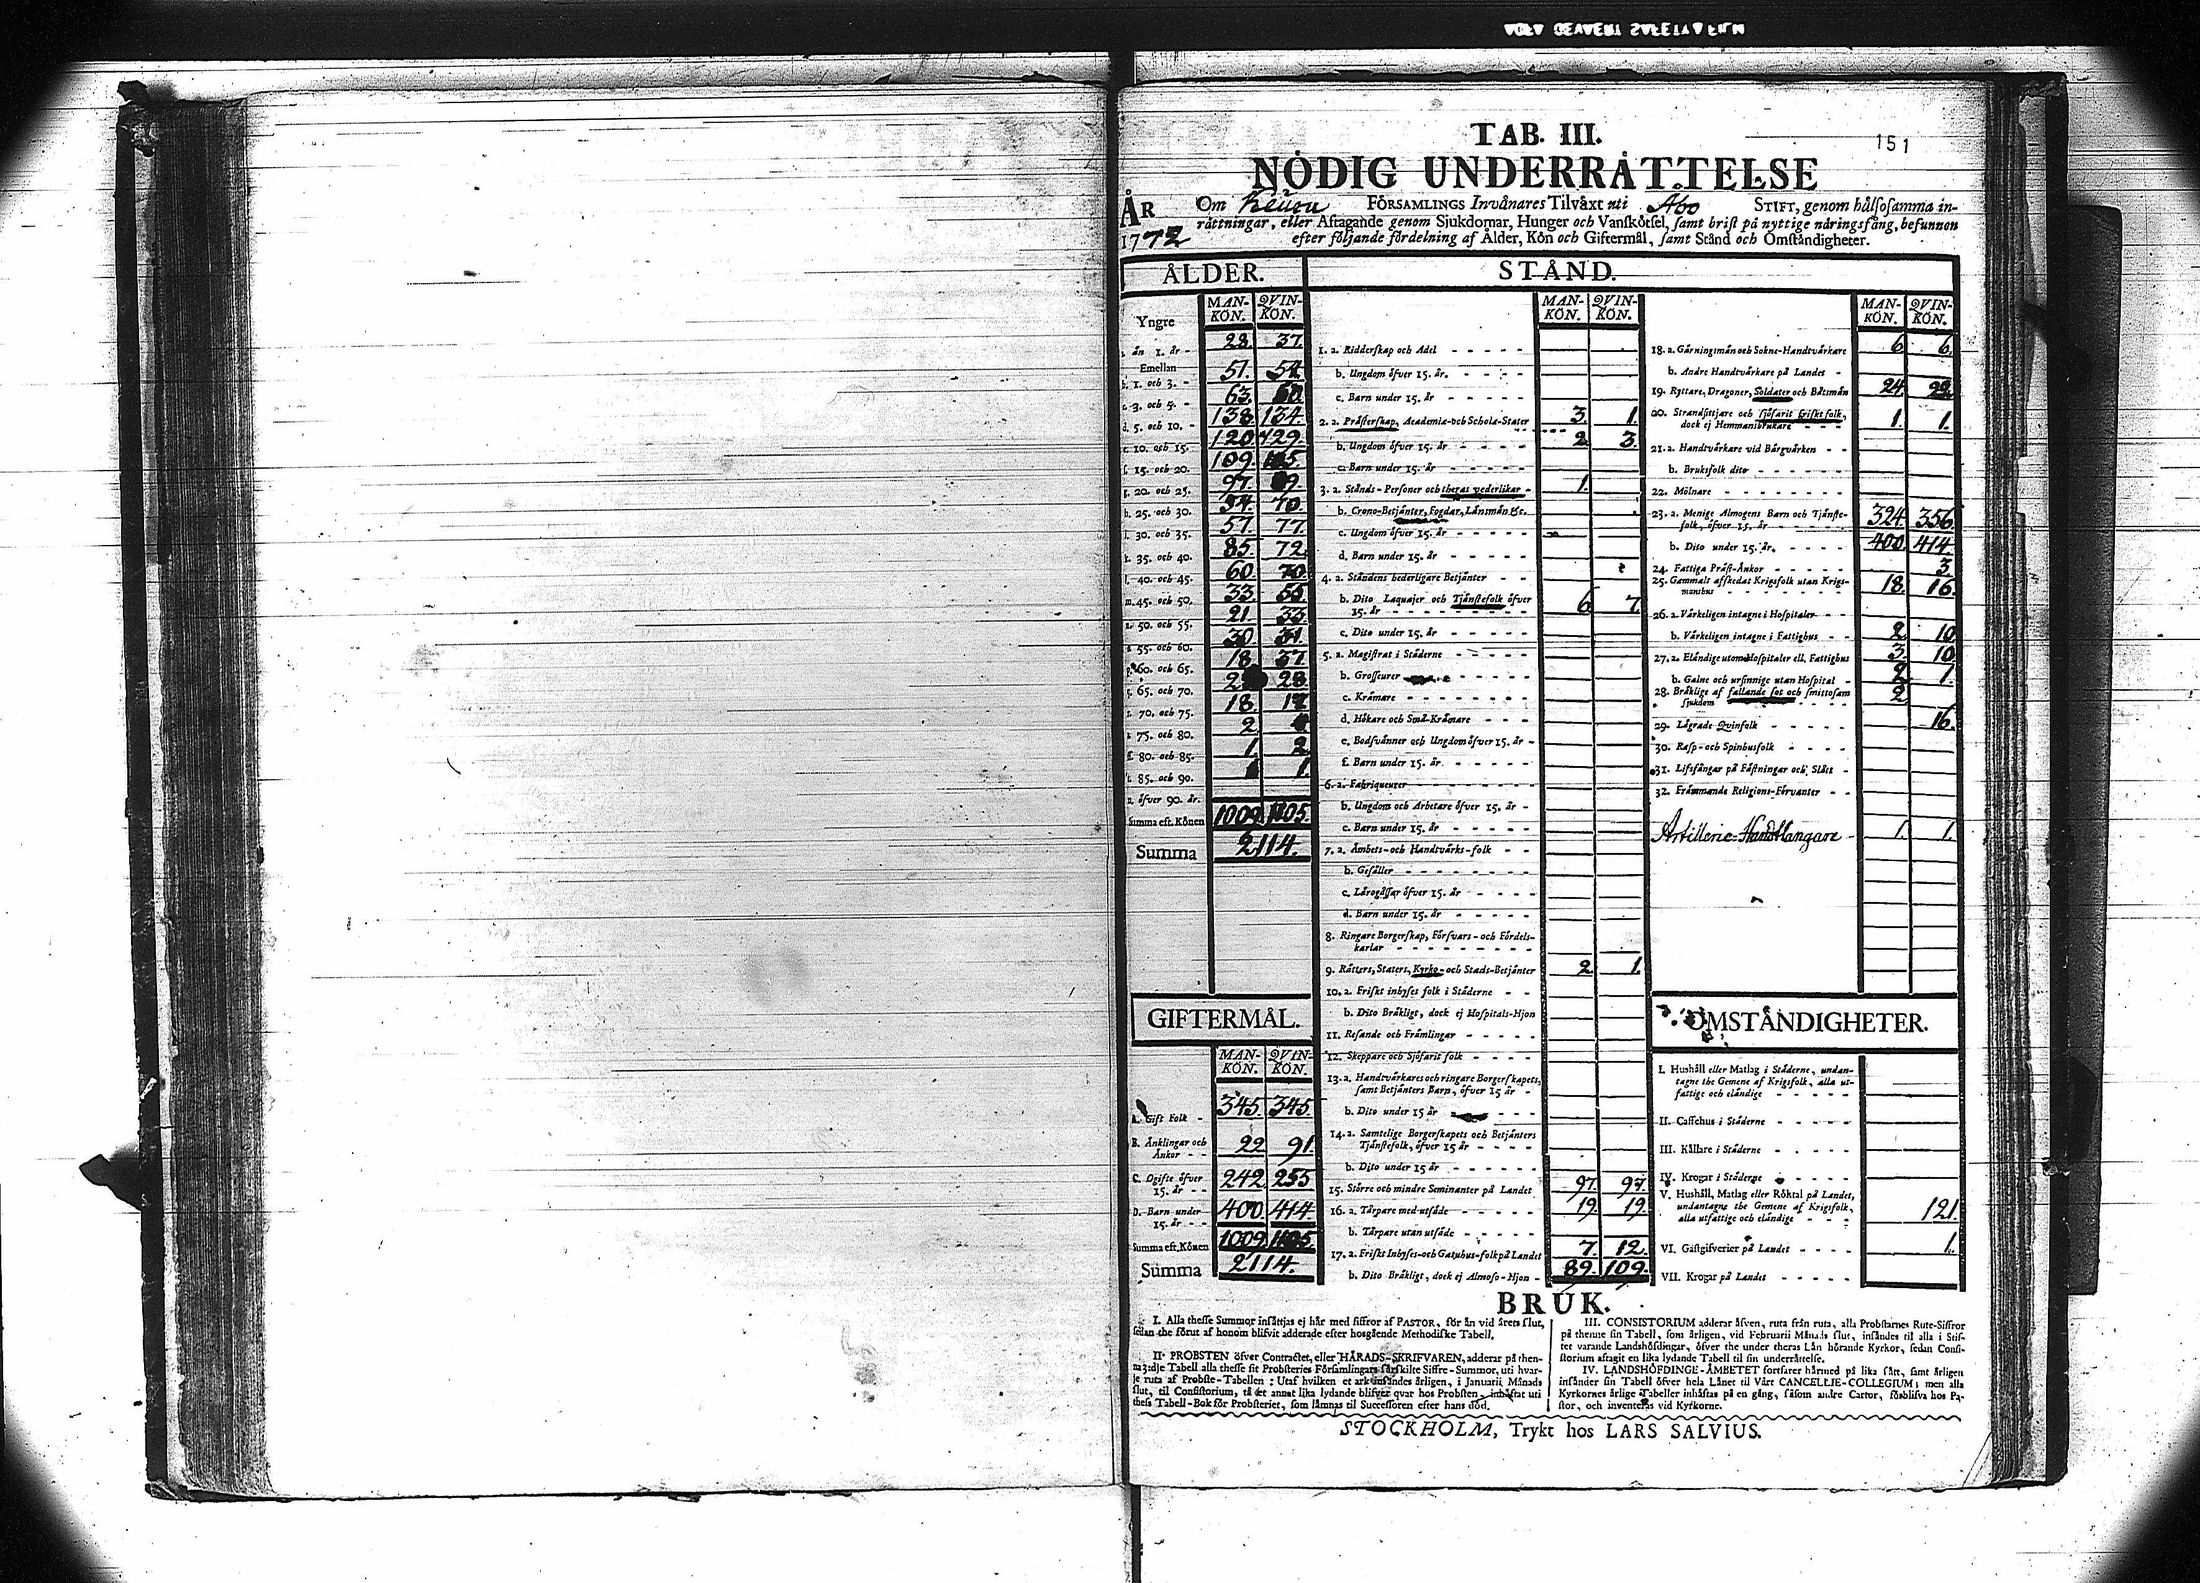 TAB. III.
151
NÖDIG UNDERRÅTTELSE
ÅR 1772
Om FÖRSAMLINGS Invånares Tilväxt uti Åbo STIFT, genom hålsosamma in-
råttningar, eller Aftagande genom Sjukdomar, Hunger och Vanskötsel, samt brist på nyttige näringsfång, befunnen
efter följande fördelning af Ålder, Kön och Giftermål, samt Stånd och Omständigheter.
ÅLDER.
MAN-KÖN. QVIN-KÖN.
Yngre
än 1. år - 28. 37.
Emellan
b. 1. och 3. - 51.
c. 3. och 5. - 63.
d. 5. och 10. - 138. 134.
e. 10. och 15. 120. 129.
f. 15. och 20. 109.
g. 20. och 25. 97.
h. 25. och 30. 70.
i. 30. och 35. 57. 77.
k. 35. och 40. 85. 72.
l. 40. och 45. 60. 70.
m. 45. och 50. 33.
n. 50. och 55. 21. 33.
o. 55. och 60. 30. 31.
p. 60. och 65. 18. 37.
q. 65. och 70. 28.
r. 70. och 75. 18.
s. 75. och 80. 2
t. 80. och 85. 1. 2
85. och 90. 1.
u. öfver 90. år.
Summa eft. Könen 1009. 1105.
Summa 2114.
GIFTERMÅL.
MAN-KÖN. QVIN-KÖN.
A. Gift Folk - 345. 345.
B. Änklingar och
Änkor - - 22 91.
C. Ogifte öfver
15. år - - 242 255
D. Barn under
15. år - - 400. 414
Summa eft. Könen 1009. 1105.
Summa 2114.
STÅND.
MAN-KÖN. QVIN-KÖN.
1. a. Ridderskap och Adel
b. Ungdom öfver 15. år.
c. Barn under 15. år
2. a. Prästerskap, Academiæ- och Scholæ-Stater 3. 1.
b. Ungdom öfver 15. år 2 3.
c. Barn under 15. år
3. a. Stånds-Personer och theras vederlikar - 1.
b. Crono-Betjänter, Fogdar, Länsmän &c.
c. Ungdom öfver 15. år
d. Barn under 15. år
4. a. Ståndens hederligare Betjänter
b. Dito Laquajer och Tjänstefolk öfver
15. år 6 7.
c. Dito under 15. år
5. a. Magistrat i Städerne
b. Grosseurer
c. Krämare
d. Hökare och Små-Krämare
e. Bodsvänner och Ungdom öfver 15. år
f. Barn under 15. år.
6. a. Fabriqueurer
b. Ungdom och Arbetare öfver 15. år
c. Barn under 15. år
7. a. Ämbets- och Handtvärks-folk
b. Gesäller
c. Lärogåssar öfver 15. år
d. Barn under 15. år
8. Ringare Borgerskap, Försvars- och Fördels-
karlar
9. Rätters, Staters, Kyrko- och Stads-Betjänter 2 1.
10. a. Friskt inhyses folk i Städerne
b. Dito Bräkligt, dock ej Hospitals-Hjon
11. Resande och Främlingar
12. Skeppare och Sjöfarit folk
13. a. Handtvärkares och ringare Borgerskapets,
samt Betjänters Barn, öfver 15 år
b. Dito under 15 år
14. a. Samtelige Borgerskapets och Betjänters
Tjänstefolk, öfver 15 år
b. Dito under 15 år
15. Större och mindre Hemmanster på Landet 97. 97.
16. a. Torpare med utsäde 19. 19.
b. Torpare utan utsäde
17. a. Friskt Inhyses- och Gatuhus-folk på Landet 7. 12.
b. Dito Bräkligt, dock ej Almoso-Hjon 89. 109.
MAN-KÖN. QVIN-KÖN.
18. a. Gärningsmän och Sokne-Handtvärkare 6 6.
b. Andre Handtvärkare på Landet
19. Ryttare, Dragoner, Soldater och Båtsmän 24. 22.
20. Strandsittjare och sjöfarit friskt folk,
dock ej Hemmansbrukare 1. 1.
21. a. Handtvärkare vid Bärgvärken
b. Bruksfolk dito
22. Mölnare
23. a. Menige Almogens Barn och Tjänste-
folk, öfver 15. år 324. 356.
b. Dito under 15. år. 400. 414.
24. Fattiga Präst-Änkor 3.
25. Gammalt afskedat Krigsfolk utan Krigs-
manshus 18. 16.
26. a. Värkeligen intagne i Hospitaler
b. Värkeligen intagne i Fattighus 2 10.
27. a. Eländige utom Hospitaler ell. Fattighus 3. 10.
b. Galne och ursinnige utan Hospital 2 1.
28. Bräklige af fallande sot och smittosam
sjukdom 2
29. Lägrade Qvinfolk 16.
30. Rasp- och Spinhusfolk
31. Lifsfångar på Fästningar och Slått
32. Främmande Religions-Förvanter
Artillerie-Handtlangare 1. 1.
OMSTÄNDIGHETER.
I. Hushåll eller Matlag i Städerne, undan-
tagne the Gemene af Krigsfolk, alla ut-
fattige och eländige
II. Caffehus i Städerne
III. Källare i Städerne
IV. Krogar i Städerne
V. Hushåll, Matlag eller Röktal på Landet,
undantagne the Gemene af Krigsfolk,
alla utfattige och eländige 121.
VI. Gästgifverier på Landet 1.
VII. Krogar på Landet
BRUK.
I. Alla thesse Summor insättjas ej här med siffror af PASTOR, för än vid årets slut,
sedan the förut af honom blifvit adderade efter hosgående Methodiske Tabell.
II. PROBSTEN öfver Contractet, eller HÄRADS-SKRIFVAREN, adderar på then-
na 3:dje Tabell alla thesse sit Probsteries Församlingars särskilte Siffre-Summor, uti hvar-
je ruta af Probste-Tabellen: Utaf hvilken et ark insändes årligen, i Januarii Månads
slut, til Consistorium, tå det annat lika lydande blifver qvar hos Probsten, inhäftat uti
thess Tabell-Bok för Probsteriet, som lämnas til Successoren efter hans död.
III. CONSISTORIUM adderar äfven, ruta från ruta, alla Probstarnes Rute-Siffror
på thenne sin Tabell, som årligen, vid Februarii Månads slut, insändes til alla i Stif-
tet varande Landshöfdingar, öfver the under theras Län hörande Kyrkor, sedan Consi-
storium aftagit en lika lydande Tabell til sin underrättelse.
IV. LANDSHÖFDINGE-ÄMBETET fortfarer härmed på lika sätt, samt årligen
insänder sin Tabell öfver hela Länet til Vårt CANCELLIE-COLLEGIUM; men alla
Kyrkornes årlige Tabeller inhäftas på en gång, såsom andre Cartor, förblifva hos Pa-
stor, och inventeras vid Kyrkorne.
STOCKHOLM, Trykt hos LARS SALVIUS.